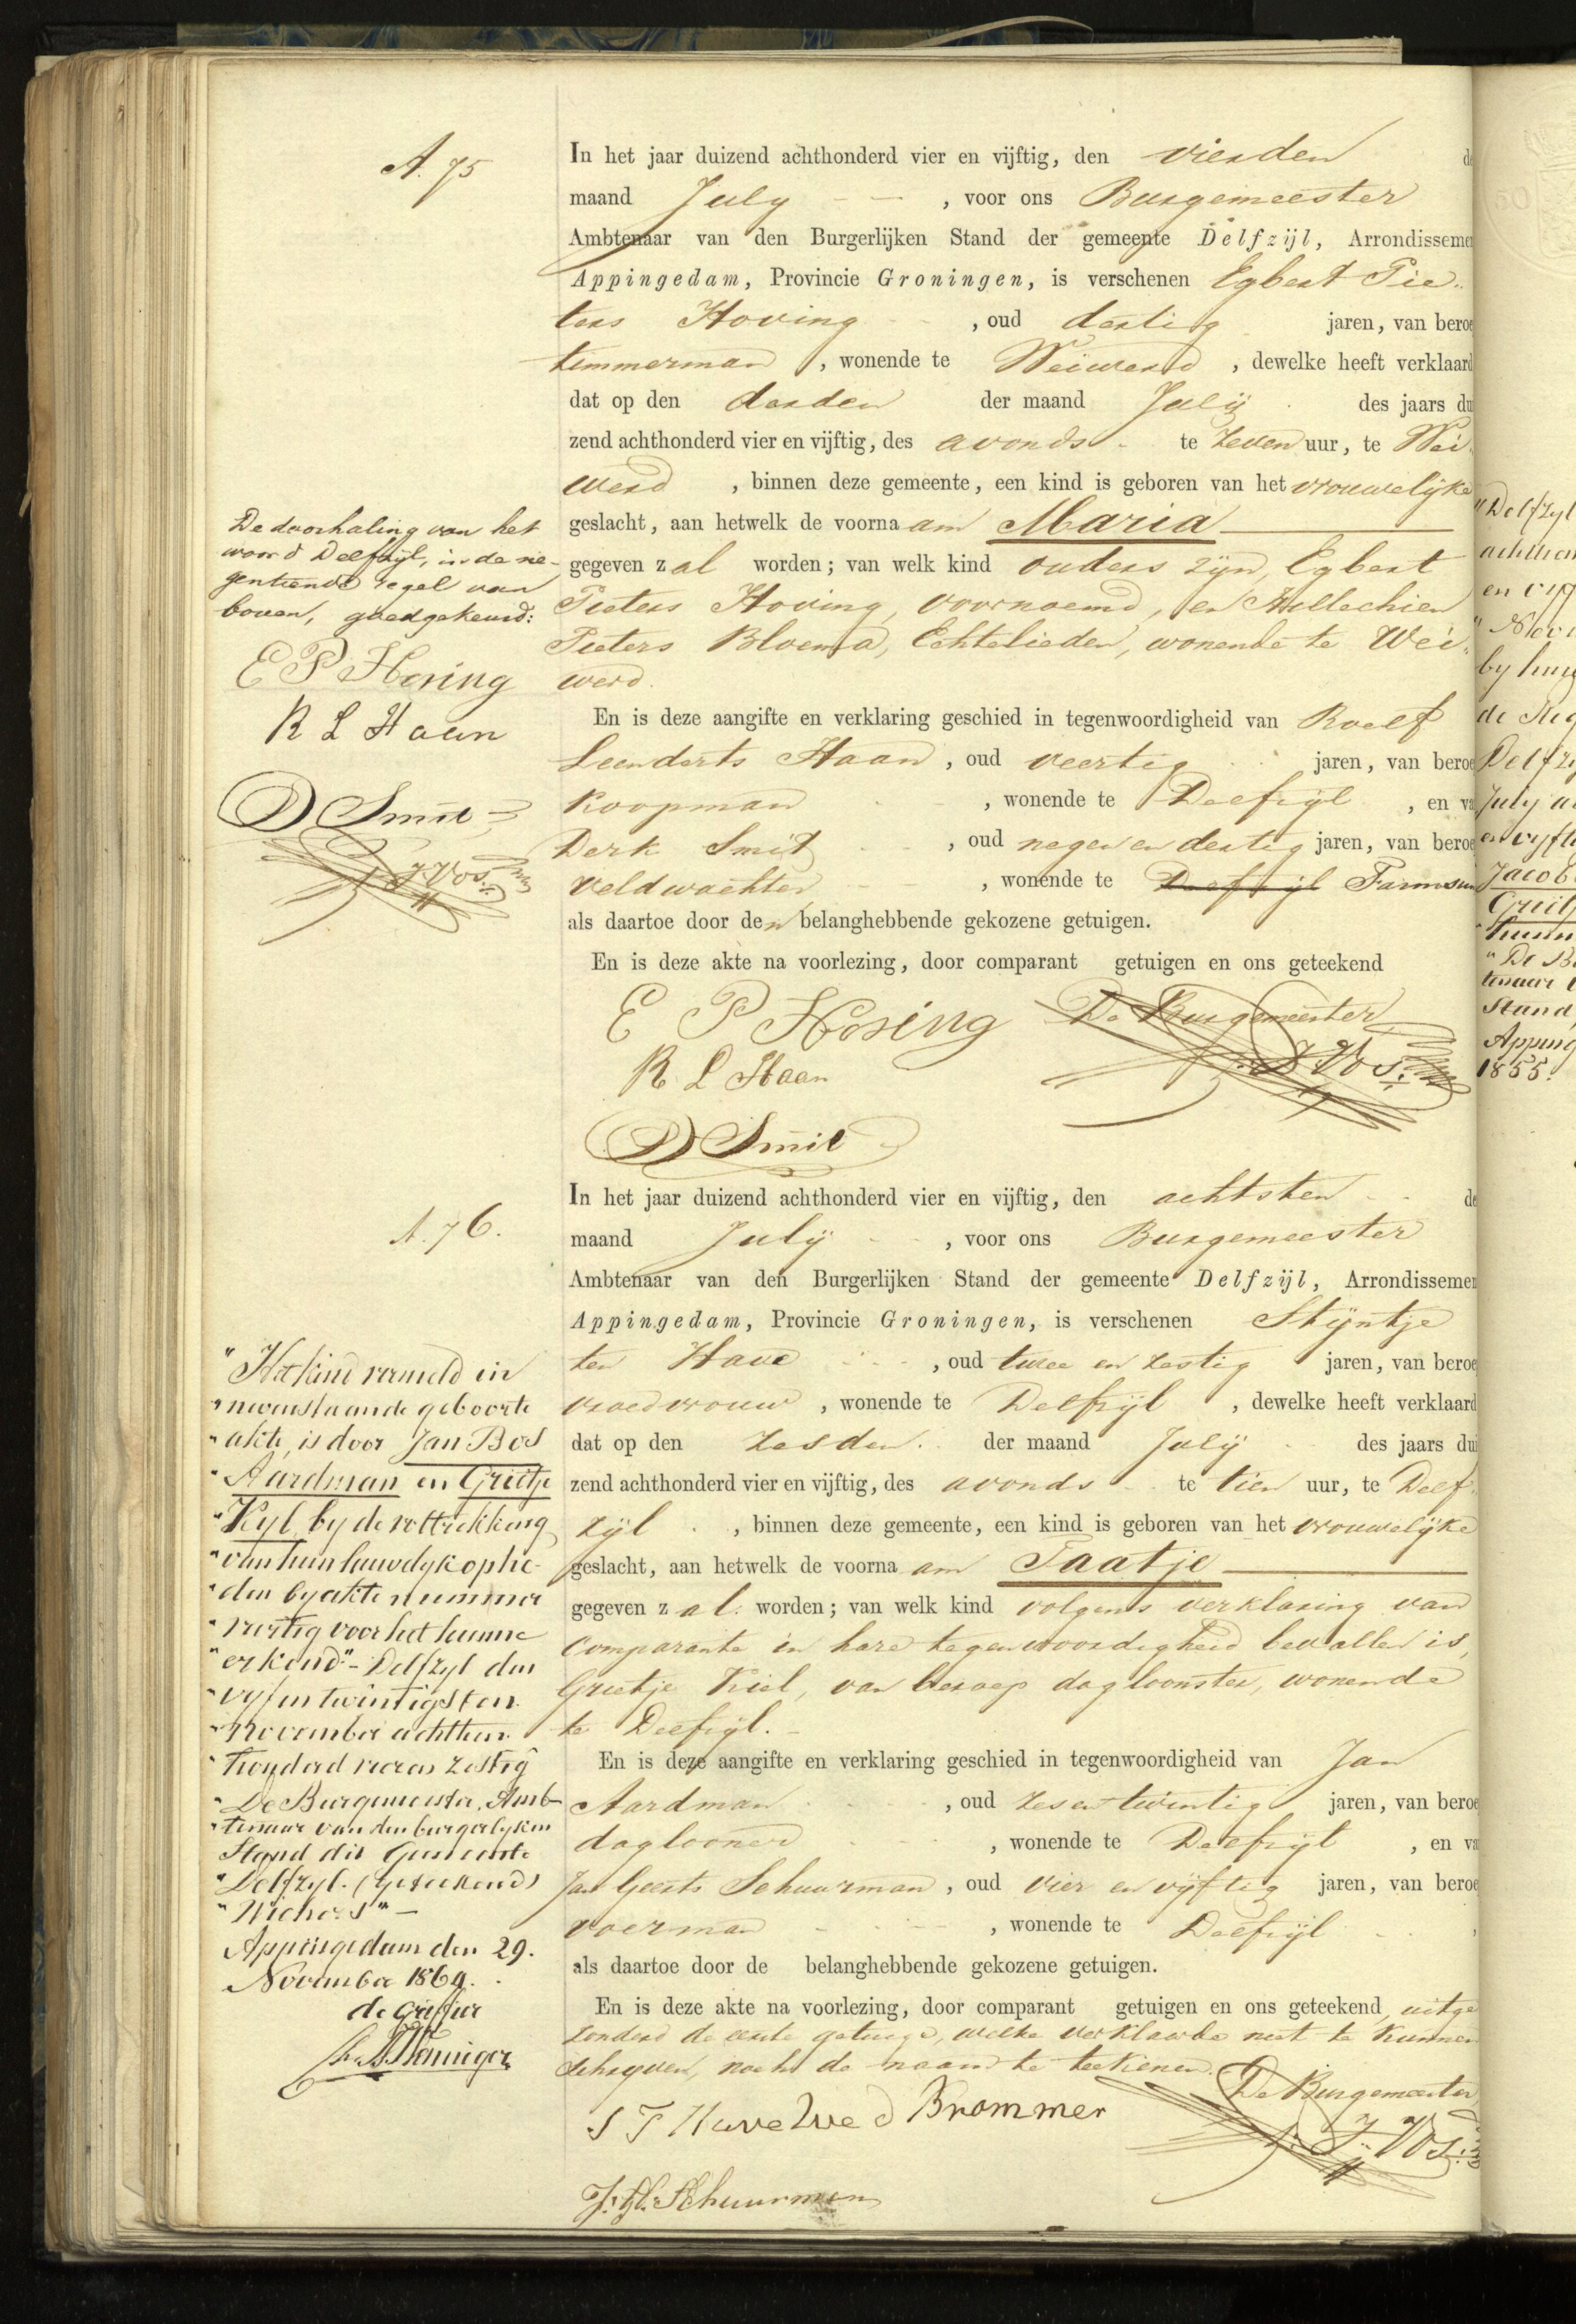 A. 75
In het jaar duizend achthonderd vier en vijftig, den vierden de
maand July , voor ons Burgemeester
Ambtenaar van den Burgerlijken Stand der gemeente Delfzijl, Arrondisseme
Appingedam, Provincie Groningen, is verschenen Egbert Pie-
ters Hoving , oud dertig jaren, van beroe
timmerman , wonende te Weiwerd , dewelke heeft verklaard
dat op den derden der maand July des jaars du
zend achthonderd vier en vijftig, des avonds te zeven uur, te Wei-
werd , binnen deze gemeente, een kind is geboren van het vrouwelijke
geslacht, aan hetwelk de voornaam Maria
gegeven zal worden; van welk kind ouders zijn, Egbert
Pieters Hoving, voornoemd, en
Pieters Bloema, Echtelieden, wonende te Wei-
werd.
En is deze aangifte en verklaring geschied in tegenwoordigheid van Roelf
Leenderts Haan , oud veertig jaren, van beroe
Koopman , wonende te Delfzijl , en va
Derk Smit , oud negen en dertig jaren, van beroe
veldwachter , wonende te Delfzijl Farmsum
als daartoe door den belanghebbende gekozene getuigen.
En is deze akte na voorlezing, door comparant getuigen en ons geteekend
E P Hoving De Burgemeester
R L Haan J. Vos
D Smit
De doorhaling van het
woord Delfzijl, in de ne-
gentiende regel van
boven, goedgekeurd:
E P Hoving
R L Haan
D Smit
J. Vos
A. 76.
In het jaar duizend achthonderd vier en vijftig, den achtsten de
maand July , voor ons Burgemeester
Ambtenaar van den Burgerlijken Stand der gemeente Delfzijl, Arrondissemen
Appingedam, Provincie Groningen, is verschenen Stijntje
ten Have , oud twee en zestig jaren, van beroe
vroedvrouw , wonende te Delfzijl , dewelke heeft verklaard
dat op den zesden der maand July des jaars dui
zend achthonderd vier en vijftig, des avonds te tien uur, te Delf-
zijl , binnen deze gemeente, een kind is geboren van het vrouwelijke
geslacht, aan hetwelk de voornaam Taatje
gegeven zal worden; van welk kind volgens verklaring van
Comparante in hare tegenwoordigheid bevallen is,
Grietje Kiel, van beroep dagloonster, wonende
te Delfzijl.
En is deze aangifte en verklaring geschied in tegenwoordigheid van Jan
Aardman , oud zes en twintig jaren, van beroe
daglooner , wonende te Delfzijl , en va
Jan Geerts Schuurman , oud vier en vijftig jaren, van beroe
voerman , wonende te Delfzijl
als daartoe door de belanghebbende gekozene getuigen.
En is deze akte na voorlezing, door comparant getuigen en ons geteekend, uitge
zonderd de eerste getuige, welke verklaarde niet te kunnen
schryven, noch de naam te teekenen.
De Burgemeester
S T Have Wed Brommer
J. Vos
J: G: Schuurman
"Het kind vermeld in
"nevenstaande geboorte
"akte, is door Jan Bos
"Aardman en Grietje
"Kyl, by de voltrekking
"van hun huwelyk op he-
"den by akte nummer
"veertig voor het hunne
"erkend"- Delfzyl den
"vyf en twintigsten
"November achttien
"honderd vier en zestig
"De Burgemeester, Amb-
"tenaar van den burgerlyken
Stand der Gemeente
"Delfzyl. (geteekend)
Appingedam den 29.
November 1864.
de Griffier
"Delfzyl
achttien
en vyf
by hun
Delfzy
July a
en vyft
Jacob
"De B
tenaar
Stand
Apping
1855.